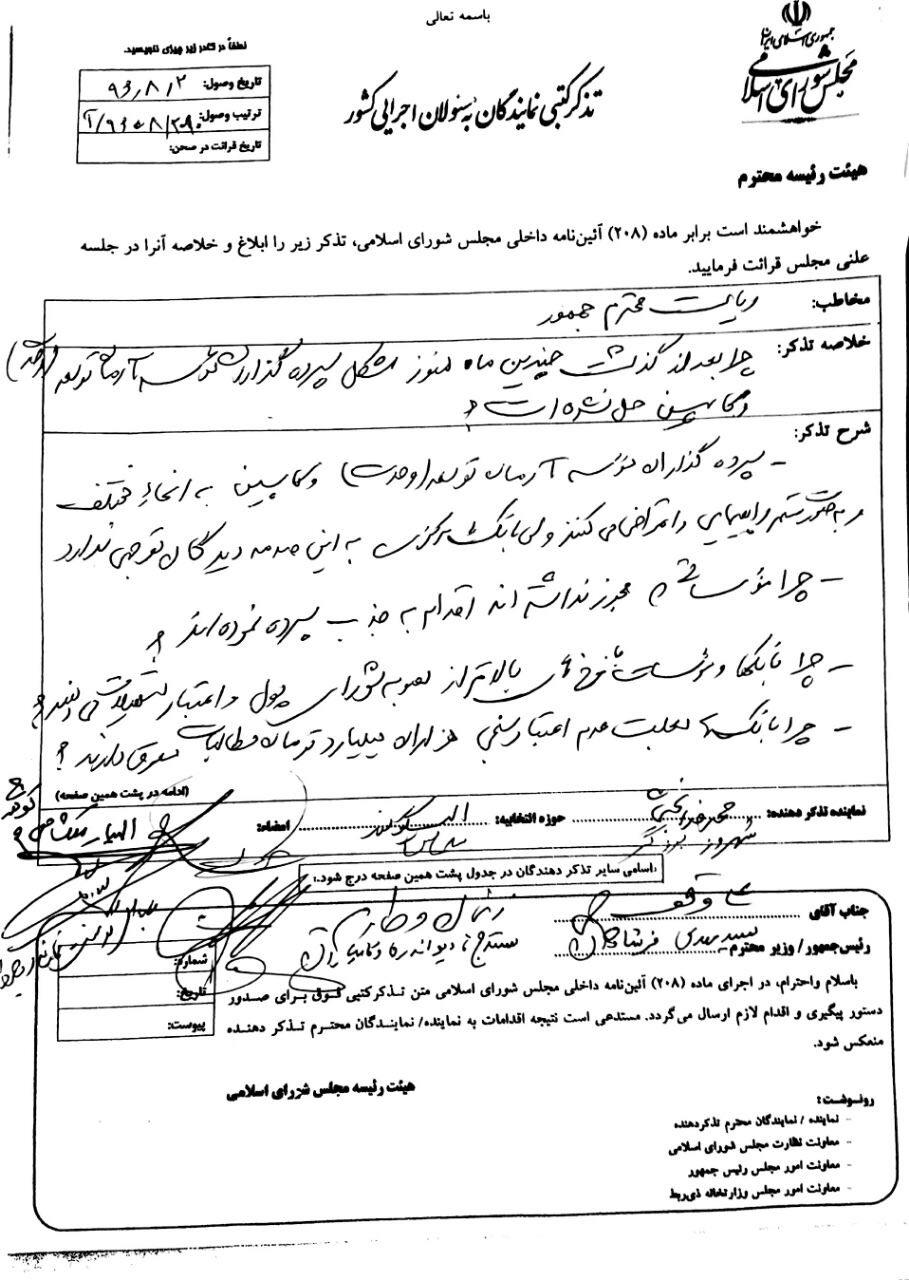 باسمه تعالی
جمهوری اسلامی ایران
مجلس شورای اسلامی
لطفاً در کادر زیر چیزی ننویسید.
تاریخ وصول: ۹۶/۸/۲
ترتیب وصول:
تاریخ قرائت در صحن:
تذکر کتبی نمایندگان به مسئولان اجرایی کشور
هیئت رئیسه محترم
خواهشمند است برابر ماده (۲۰۸) آئین‌نامه داخلی مجلس شورای اسلامی، تذکر زیر را ابلاغ و خلاصه آنرا در جلسه
علنی مجلس قرائت فرمایید.
مخاطب: ریاست محترم جمهور
خلاصه تذکر: چرا بعد از گذشت چندین ماه هنوز مشکل سپرده گذاران مؤسسه آرمان توسعه (وحدت)
و کاسپین حل نشده است؟
شرح تذکر:
- سپرده گذاران مؤسسه آرمان توسعه (وحدت) و کاسپین به انحاء مختلف
راهپیمایی و اعتراض می کنند ولی بانک مرکزی به این صدمه دیدگان توجهی ندارد
- چرا مؤسساتی که مجوز نداشته اند اقدام به جذب سپرده نموده اند؟
- چرا بانکها و مؤسسات با نرخ های بالاتر از مصوبه شورای پول و اعتبار تسهیلات می دهند؟
- چرا بانکها بعلت عدم اعتبار سنجی هزاران میلیارد تومان مطالبات معوق دارند؟
(ادامه در پشت همین صفحه)
نماینده تذکر دهنده: حوزه انتخابیه: امضاء:
اسامی سایر تذکر دهندگان در جدول پشت همین صفحه درج شود.
جناب آقای
رئیس‌جمهور / وزیر محترم
شماره:
تاریخ:
پیوست:
باسلام واحترام، در اجرای ماده (۲۰۸) آئین‌نامه داخلی مجلس شورای اسلامی متن تذکرکتبی فوق برای صدور
دستور پیگیری و اقدام لازم ارسال می‌گردد. مستدعی است نتیجه اقدامات به نماینده/ نمایندگان محترم تذکر دهنده
منعکس شود.
هیئت رئیسه مجلس شورای اسلامی
رونوشت:
- نماینده / نمایندگان محترم تذکردهنده
- معاونت نظارت مجلس شورای اسلامی
- معاونت امور مجلس رئیس جمهور
- معاونت امور مجلس وزارتخانه ذی‌ربط